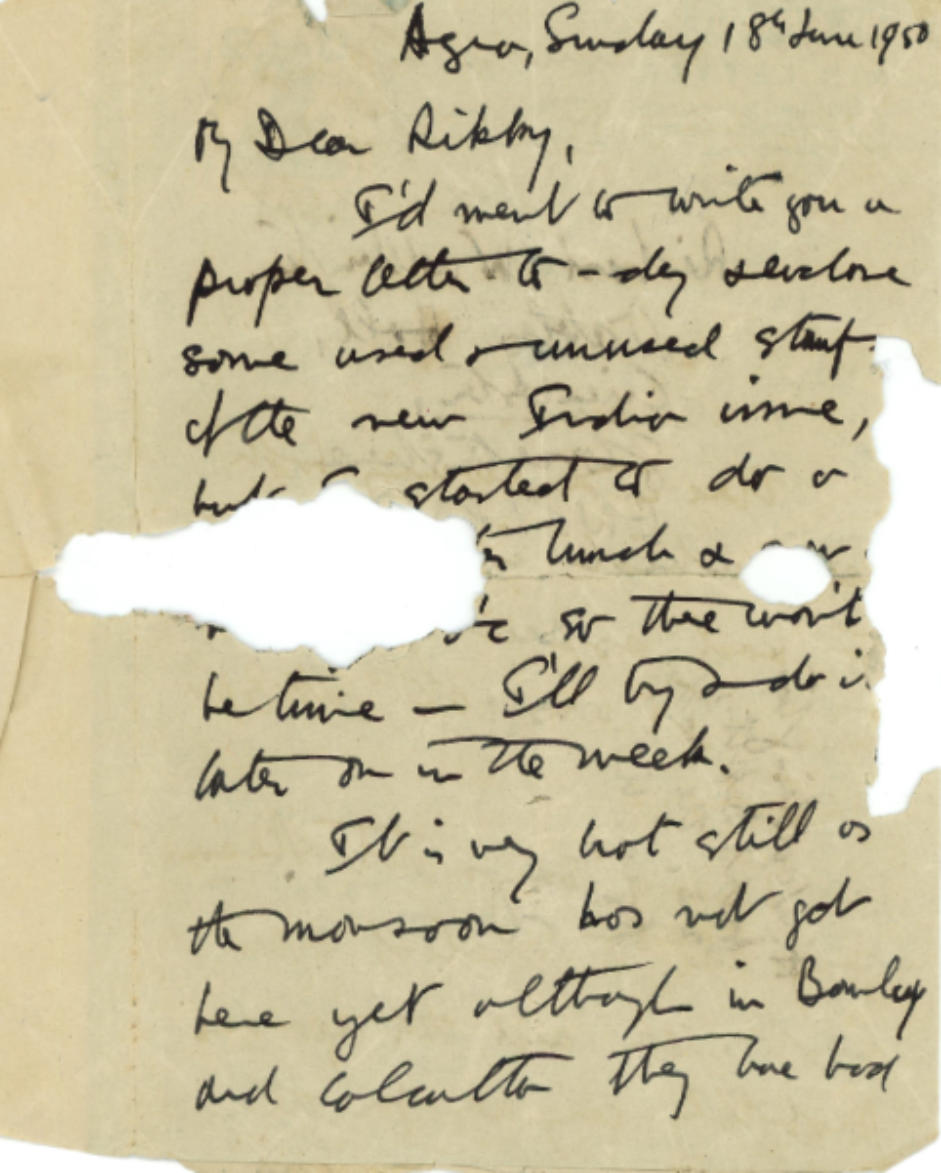 Agra, Sunday 18th June 1950
My Dear Rikky,
I'd ment to write you a
proper letter to-day & enclose
some used & unused stamp
of the new Indian issue,
but I started to do a
lunch &
so there won't
be time — I'll try & do i
later on in the week.
It is very hot still as
the monsoon has not got
here yet although in Bombay
and Calcutta they have had